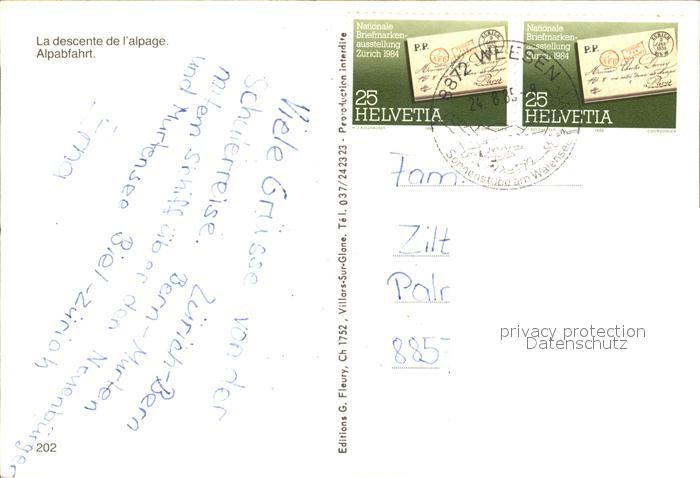 La descente de l'alpage.
Alpabfahrt.
Viele Grüsse von der
Schulerreise. Zürich-Bern
mitem Schiff über den Bern-Murten
und Murtensee Biel-Zürich Neuenbürger
Irma
202
Editions G. Fleury, Ch 1752, Villars-Sur-Glane. Tél. 037/242323 - Reproduction interdite
Nationale
Briefmarken-
ausstellung
Zürich 1984
P.P.
25
HELVETIA
Nationale
Briefmarken-
ausstellung
Zürich 1984
P.P.
25
HELVETIA
8872 WEESEN
Sonnenstube am Walensee
Fam
Zilt
Palr
885
privacy protection
Datenschutz